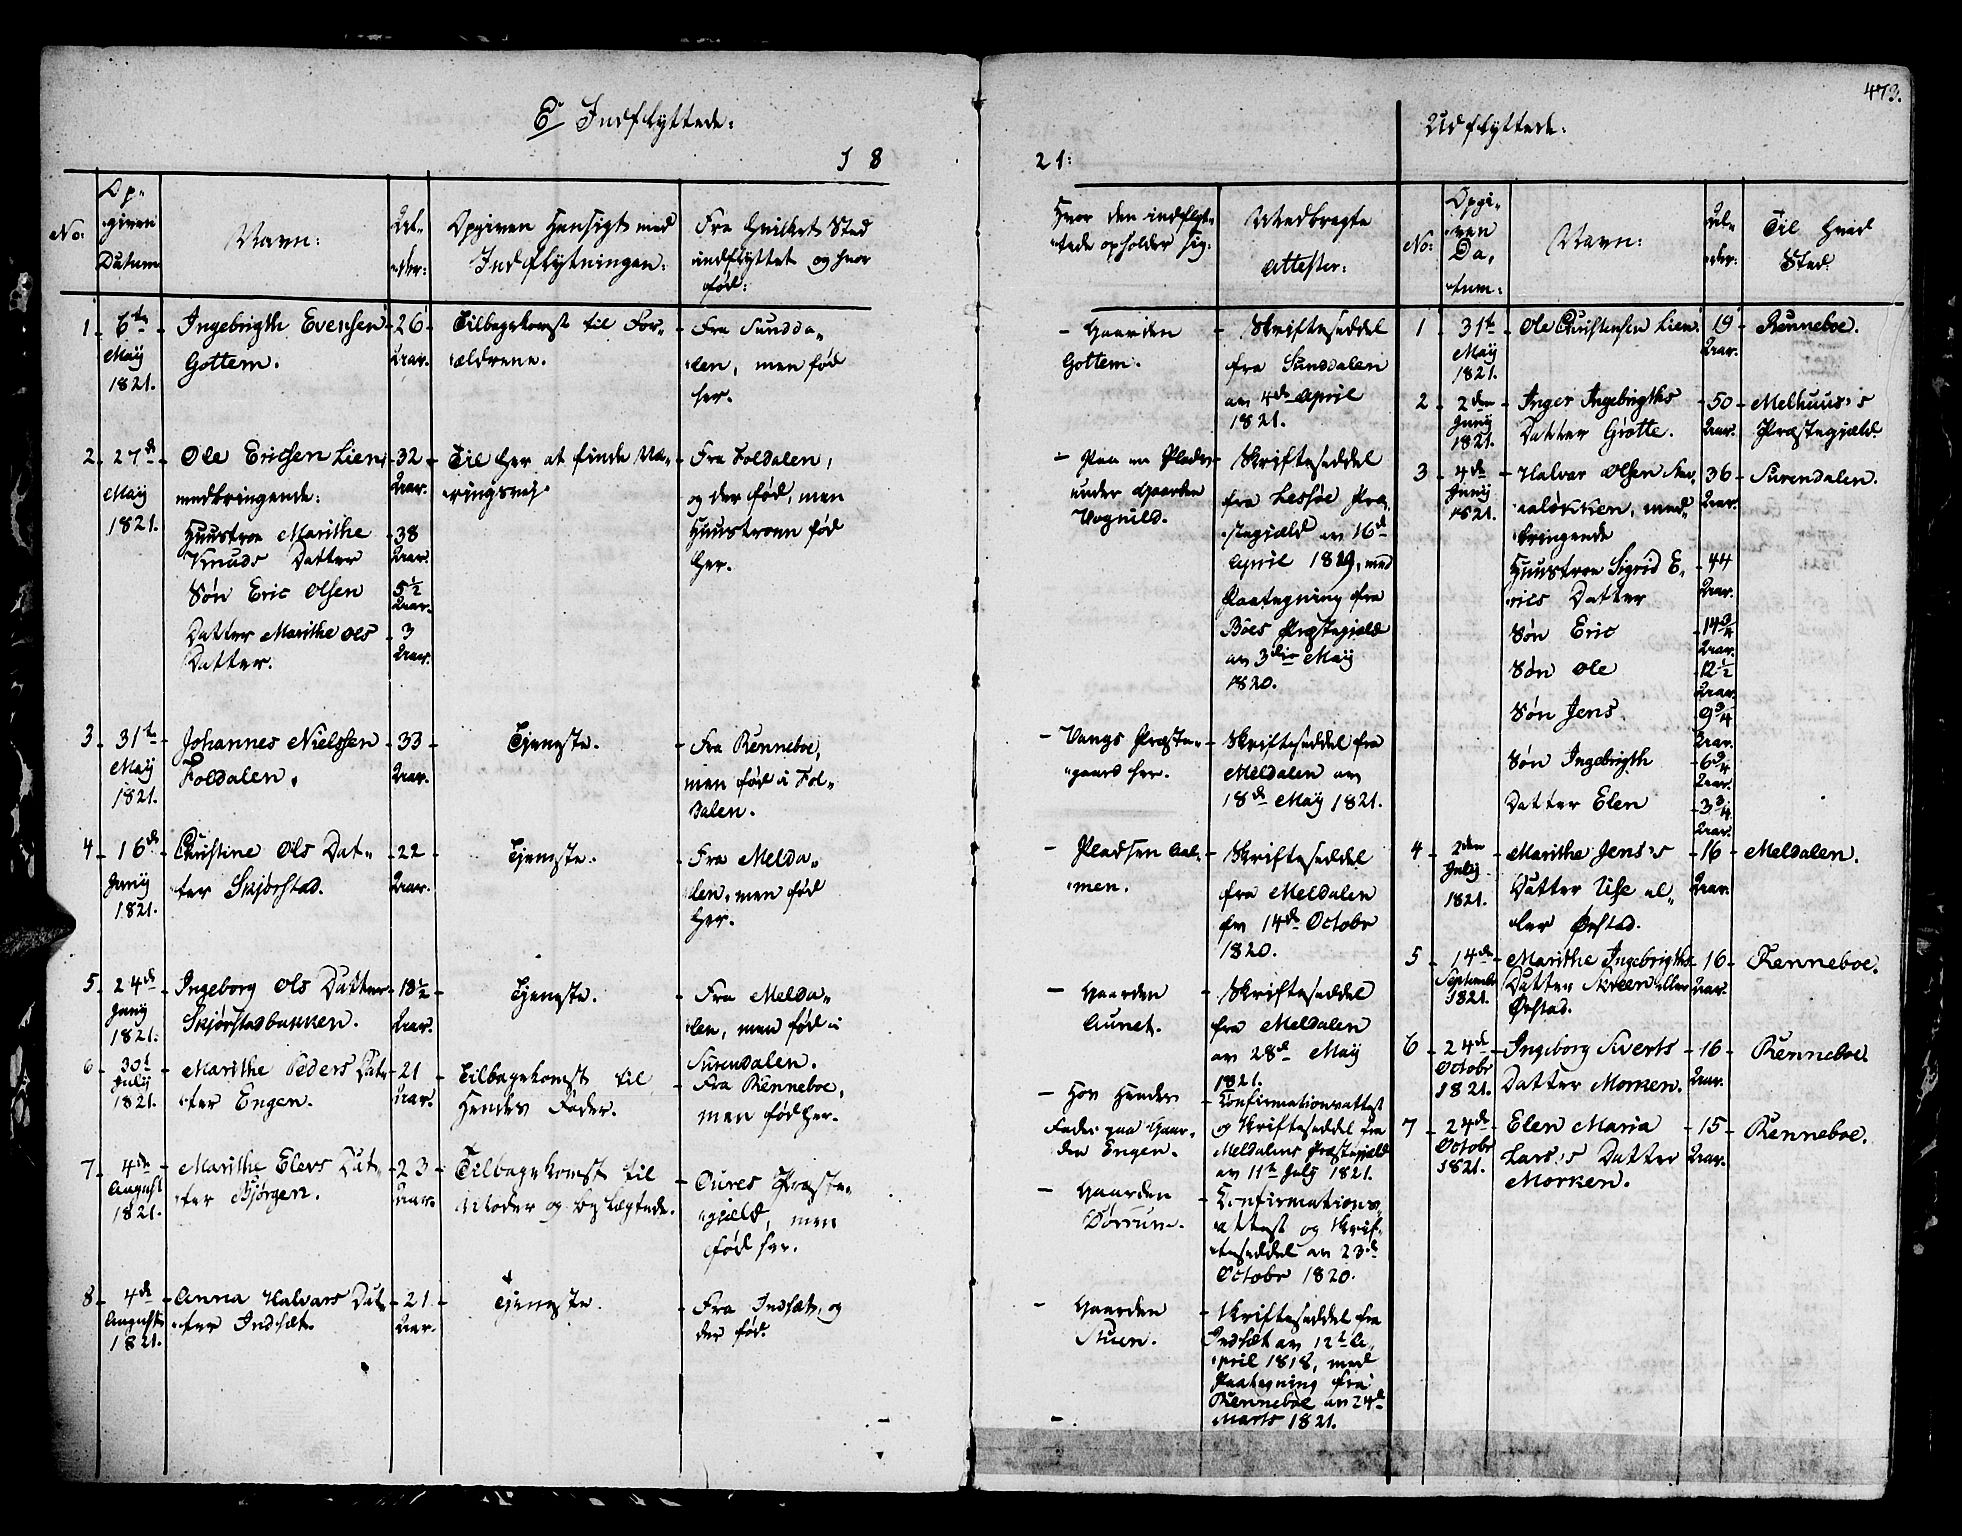 473.
E Indflyttede:
18
21:
Udflyttede:
No:
Op-
given
Datum
Navn:
Al-
der:
Opgiven Hensigt med
Indflytningen:
Fra hvilket Sted
indflyttet og hvor
fød:
Hvor den indflyt-
tede opholder sig:
Medbragte
Attester:
1 - 6te
May
1821.
Ingebrigth Evensen
Gottem.
26
Aar.
Tilbagekomst til For-
ældrene.
Fra Sundda-
len, men fød
her.
- Gaarden
Gottem.
- Skrifteseddel
fra Sunddalen
av 4de April
1821.
2 - 27de
May
1821.
Ole Ericsen Lien,
medbringende:
Huustroe Marithe
Knuds Datter
Søn Eric Olsen
Datter Marithe Ols
Datter.
32
Aar.
38
Aar.
5½
Aar.
3
Aar.
Til her at finde Næ-
ringsvej.
Fra Foldalen,
og der fød, men
Huustroen fød
her.
- Paa en Plads
under Gaarden
Vognild.
- Skrifteseddel
fra Lessøe Præ-
stegjæld av 16de
April 1819, med
Paategning fra
Böes Præstegjæld
av 3die May
1820.
3 - 31te
May
1821.
Johannes Nielssen
Foldalen.
33
Aar.
Tjeneste.
Fra Renneboe,
men fød i Fol-
dalen.
- Vangs Præste-
gaard her.
- Skrifteseddel fra
Meldalen av
18de May 1821.
4 - 16de
Juny
1821.
Christine Ols Dat-
ter Skjørstad.
22
Aar.
Tjeneste.
Fra Melda-
len, men fød
her.
- Pladsen Aal-
men.
- Skrifteseddel
fra Meldalen
fra 14de Octobr
1820.
5 - 24de
Juny
1821.
Ingeborg Ols Datter
Skjørstadbakken.
18½
Aar.
Tjeneste.
Fra Melda-
len, men fød i
Surendalen.
- Gaarden
Aunet.
- Skrifteseddel
fra Meldalen
av 28de May
1821.
6 - 30te
July
1821.
Marithe Peders Dat-
ter Engen.
21
Aar.
Tilbagekomst til
Hendes Fader.
Fra Renneboe,
men fød her.
- Hos Hendes
Fader paa Gaar-
den Engen.
- Confirmationsattest
og Skrifteseddel fra
Meldalens Præstegjæld
av 11te July 1821.
7 - 4de
August
1821.
Marithe Elevs Dat-
ter Bjørgen.
23
Aar.
Tilbagekomst til
Moder og Beslægtede.
Oures Præste-
gjæld, men
fød her.
- Gaarden
Dørrum.
- Confirmations-
attest og Skrif-
teseddel av 23de
Octobr 1820.
8 - 4de
August
1821.
Anna Halvars Dat-
ter Indsæt.
21
Aar.
Tjeneste.
Fra Indsæt, og
der fød.
- Gaarden
Stuen.
- Skrifteseddel fra
Indsæt av 12te A-
pril 1818, med
Paategning fra
Renneboe av 24de
Marts 1821.
No:
Opgi-
ven
Da-
tum:
Navn:
Al-
der:
Til hvad
Sted:
1 - 31te
May
1821.
Ole Christensen Lien.
19
Aar.
Renneboe.
2 - 2den
Juny
1821.
Inger Ingebrigths
Datter Grøtte.
50
Aar.
Melhuus's
Præstegjæld.
3 - 4de
Juny
1821.
Halvar Olsen
aaløkken, med-
bringende
Huustroe Sigrid E-
rics Datter
Søn Eric
Søn Ole
Søn Jens.
Søn Ingebrigth
Datter Elen
36
Aar.
44
Aar.
14¾
Aar.
12½
Aar.
9¾
Aar.
6¾
Aar.
3¾
Aar.
Surendalen.
4 - 2den
July
1821.
Marithe Jens's
Datter Use el-
ler Ørstad.
16
Aar.
Meldalen.
5 - 14de
Septembr
1821.
Marithe Ingebrigths
Datter Skreen eller
Ørstad.
16
Aar.
Renneboe.
6 - 24de
Octobr
1821.
Ingeborg Siverts
Datter Morken.
16
Aar.
Renneboe.
7 - 24de
Octobr
1821.
Elen Maria
Lars's Datter
Morken.
15
Aar.
Renneboe.